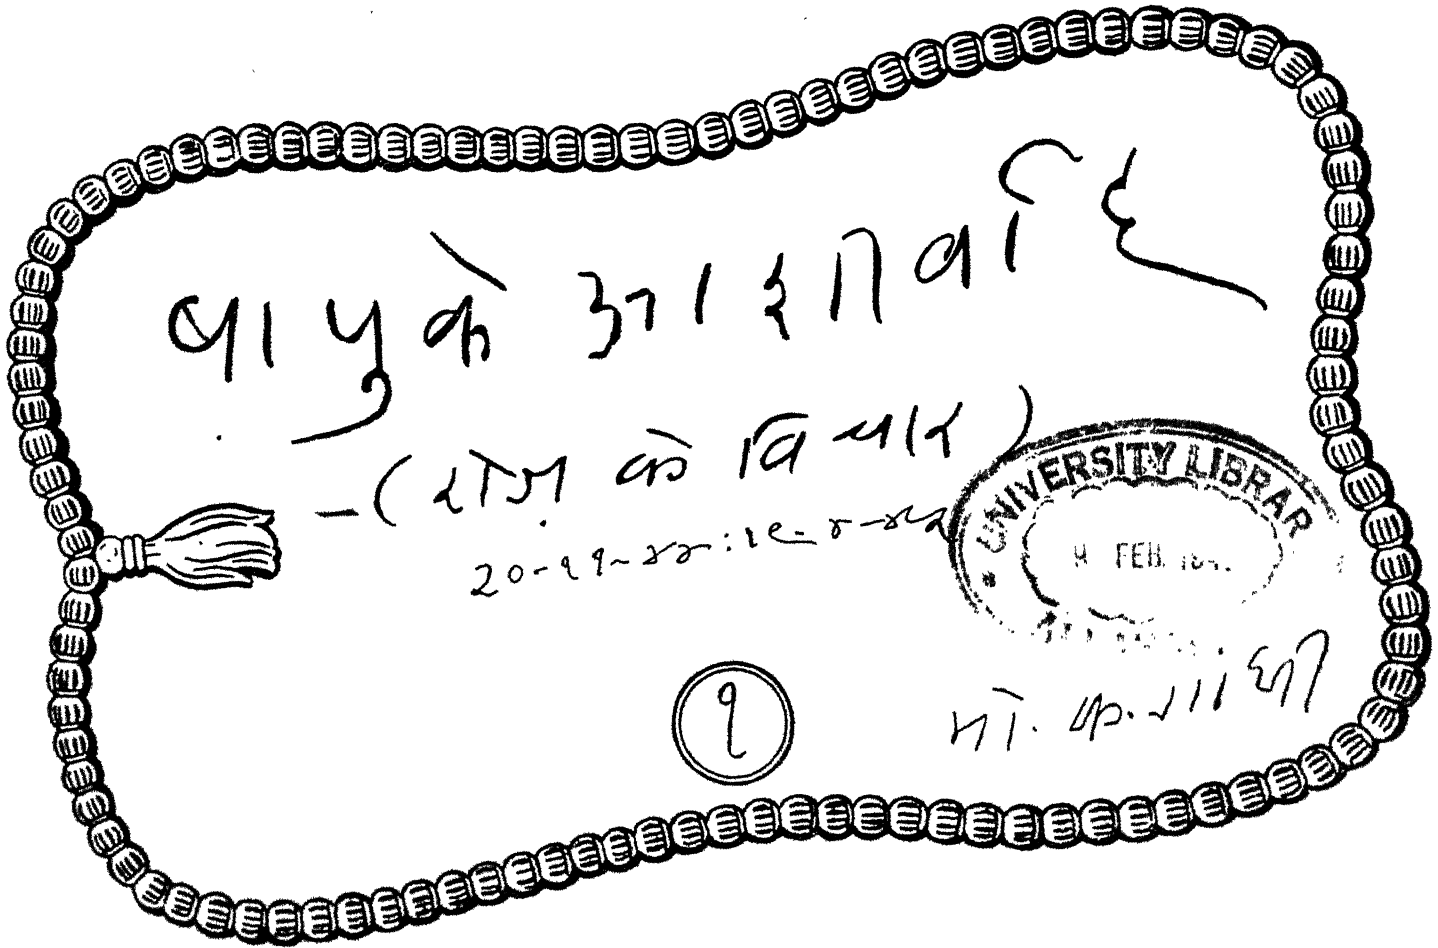 बापुके आशीर्वाद
-(रोज के विचार)
२०-११-४४:
UNIVERSITY LIBRAR
FEB.
१
मो. क. गांधी